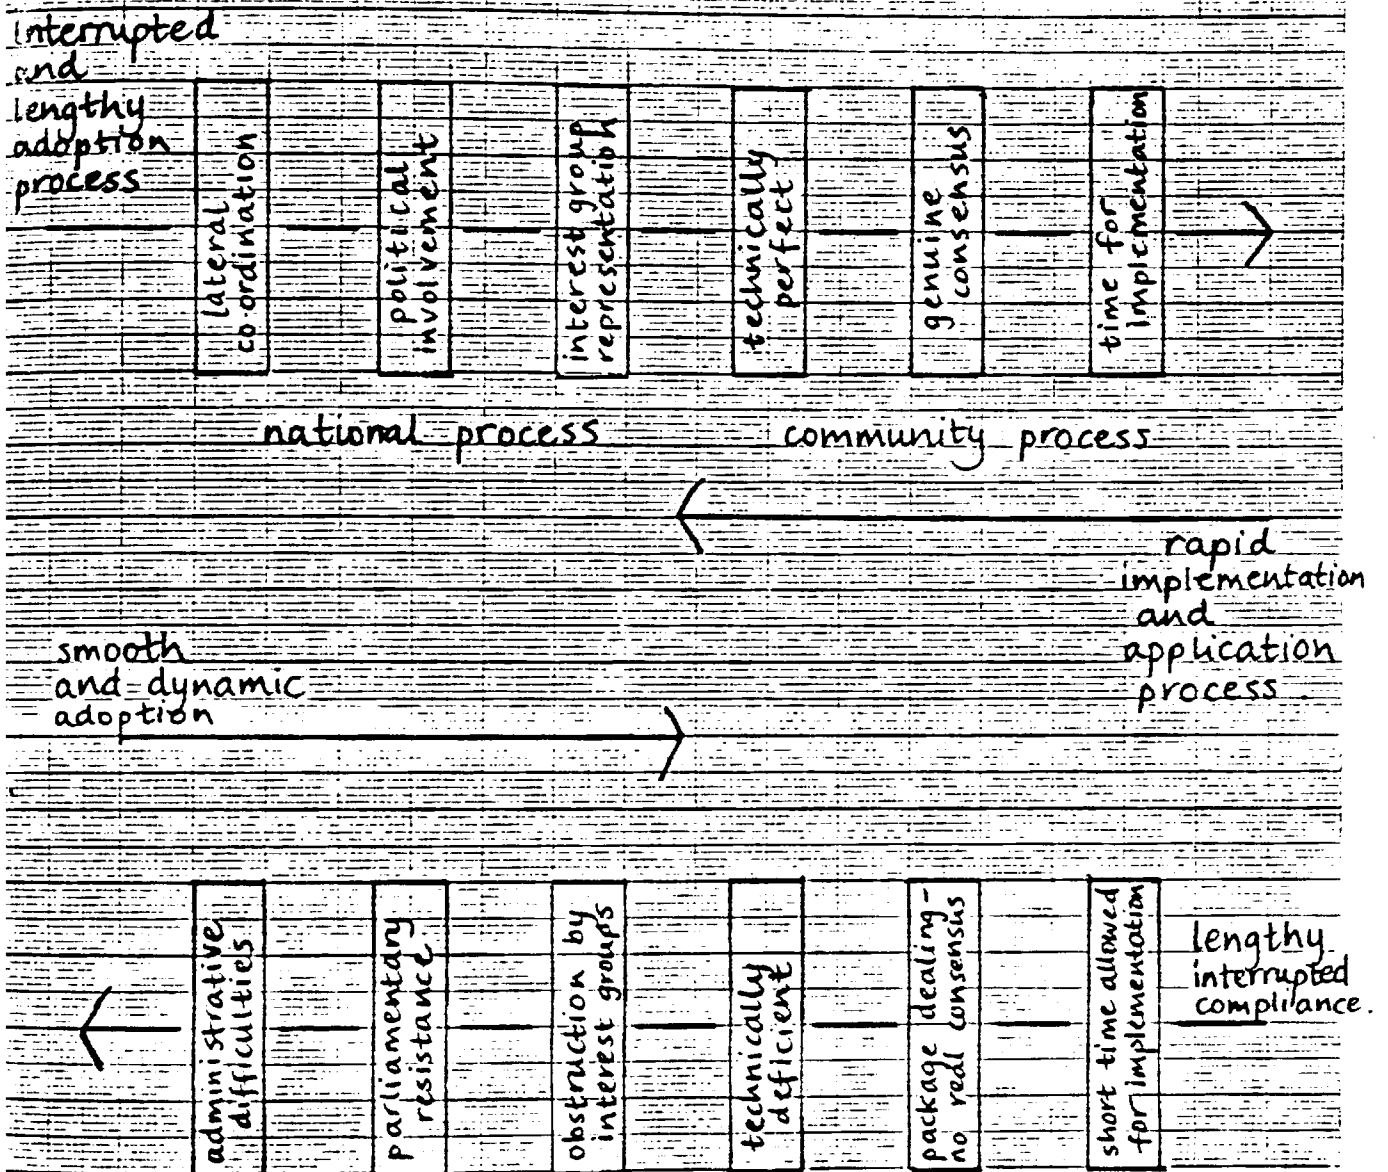 Interrupted
and
lengthy
adoption
process
lateral
co-ordination
political
involvement
interest group
representation
technically
perfect
genuine
consensus
time for
implementation
national process
community process
rapid
implementation
and
application
process.
smooth
and dynamic
adoption
administrative
difficulties
parliamentary
resistance
obstruction by
interest groups
technically
deficient
package dealing-
no real consensus
short time allowed
for implementation
lengthy
interrupted
compliance.